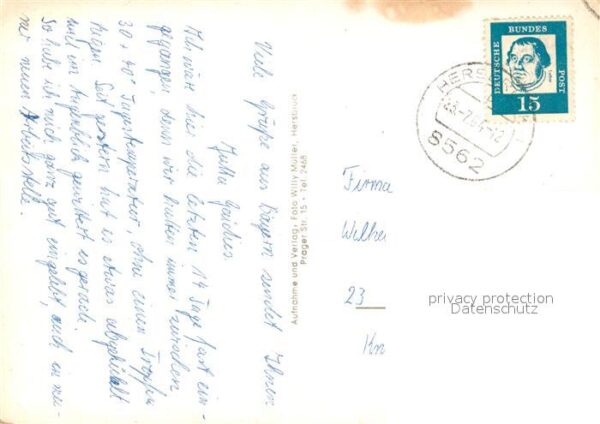 Viele Grüße aus Bayern sendet Ihnen
Jutta
Ihr wärt hier die letzten 14 Tage fast ein-
gegangen, denn wir hatten immer zwischen
30 + 40° Tagestemperatur, ohne einen Tropfen
Regen. Seit gestern hat es etwas abgekühlt
und im Augenblick gewittert es gerade.
So habe ich mich ganz gut eingelebt, auch in mei-
ner neuen Arbeitsstelle.
Aufnahme und Verlag, Foto Willy Müller, Hersbruck
Prager Str. 15 - Tel 2468
DEUTSCHE BUNDESPOST
Luther
15
HERS
7.64-12
8562
Firma
23
privacy protection
Datenschutz